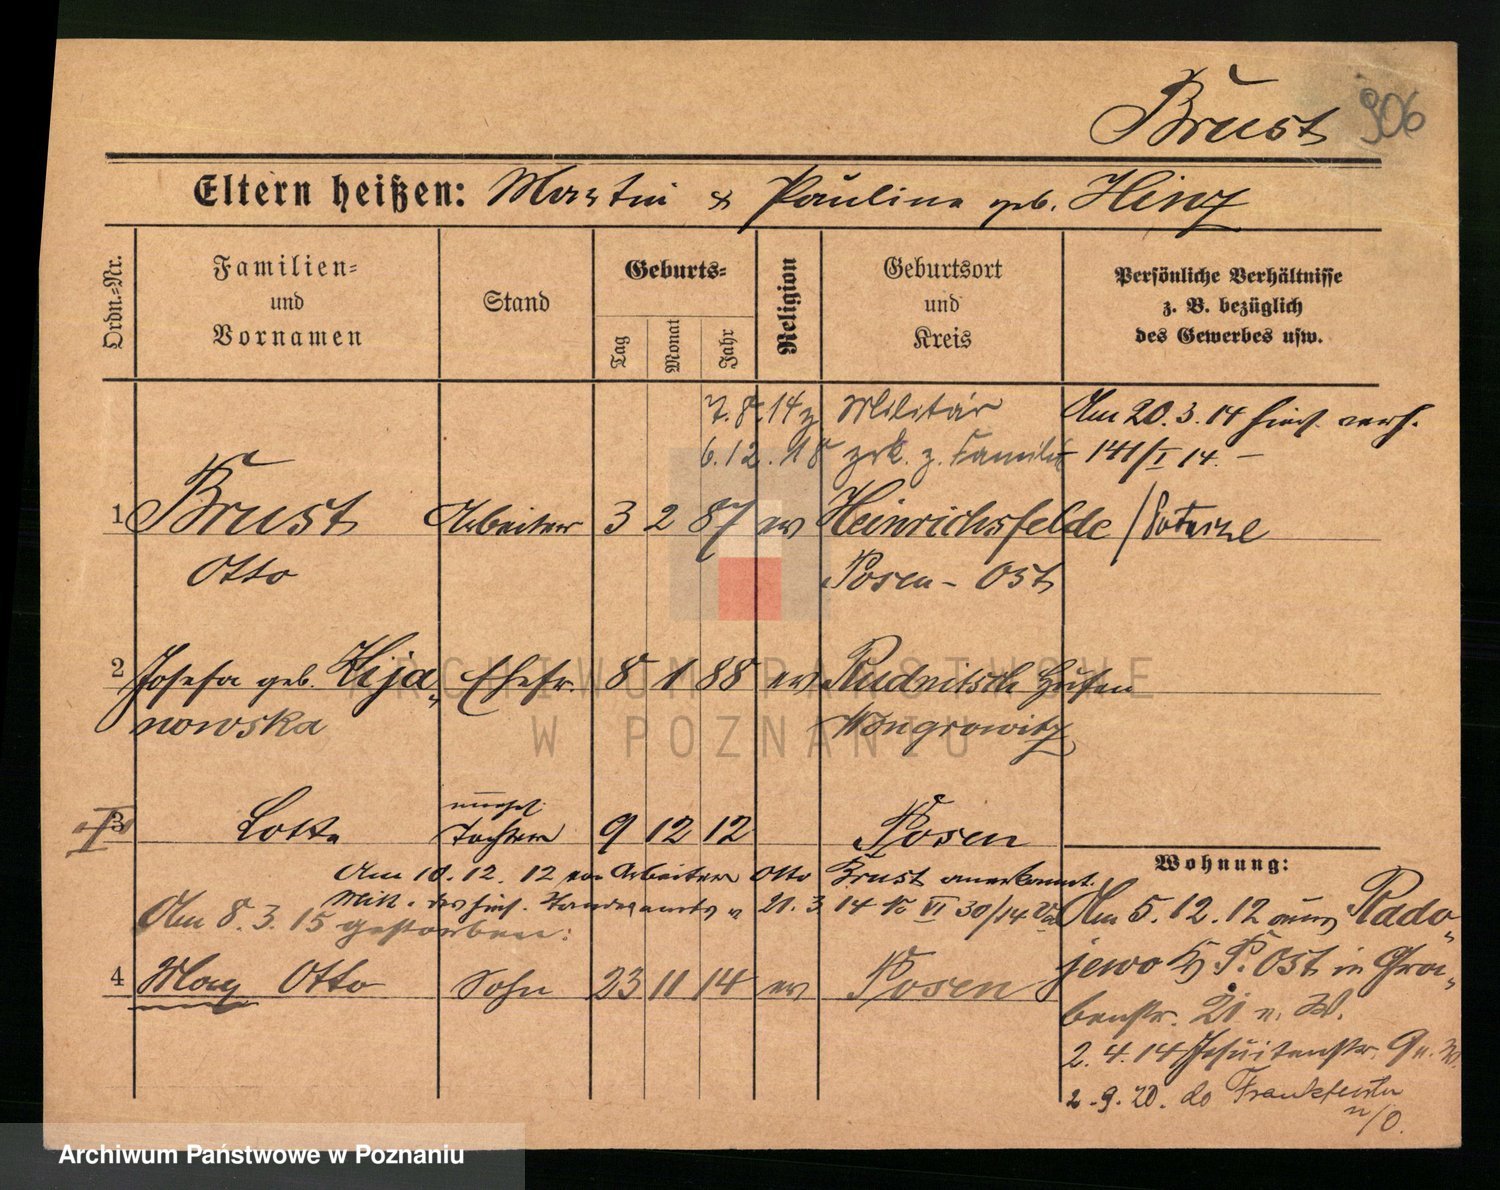 Brust 906
Eltern heißen: Martin & Pauline geb. Hinz
Ordn.-Nr.
Familien-
und
Vornamen
Stand
Geburts-
Tag
Monat
Jahr
Religion
Geburtsort
und
Kreis
Persönliche Verhältnisse
z. B. bezüglich
des Gewerbes usw.
7.8.14 z Militär
6.12.18 zrk. z. Familie
Am 20.3.14 hies. verh.
141/I 14.
1 Brust Arbeiter 3 2 87 ev Heinrichsfelde
Otto Posen-Ost
2 Josefa geb. Kija- Ehefr. 8 1 88 ev Rudnitsch Hufen
nowska Wongrowitz
3 Lotte unehel. Tochter 9 12 12 Posen
Am 10.12.12 v. Arbeiter Otto Brust anerkannt.
Mitt. des hies. Standesamts v 21.3.14 No VI 30/14
Am 8.3.15 gestorben.
4 Max Otto Sohn 23 11 14 ev Posen
Wohnung:
Am 5.12.12 aus Rado-
jewo Kr P. Ost in Gra-
benstr. 21 n. W.
2.4.14 Jesuitenstr. 9 n. W.
2.9.20. do Frankfurt
n/O.
ARCHIWUM PAŃSTWOWE
W POZNANIU
Archiwum Państwowe w Poznaniu